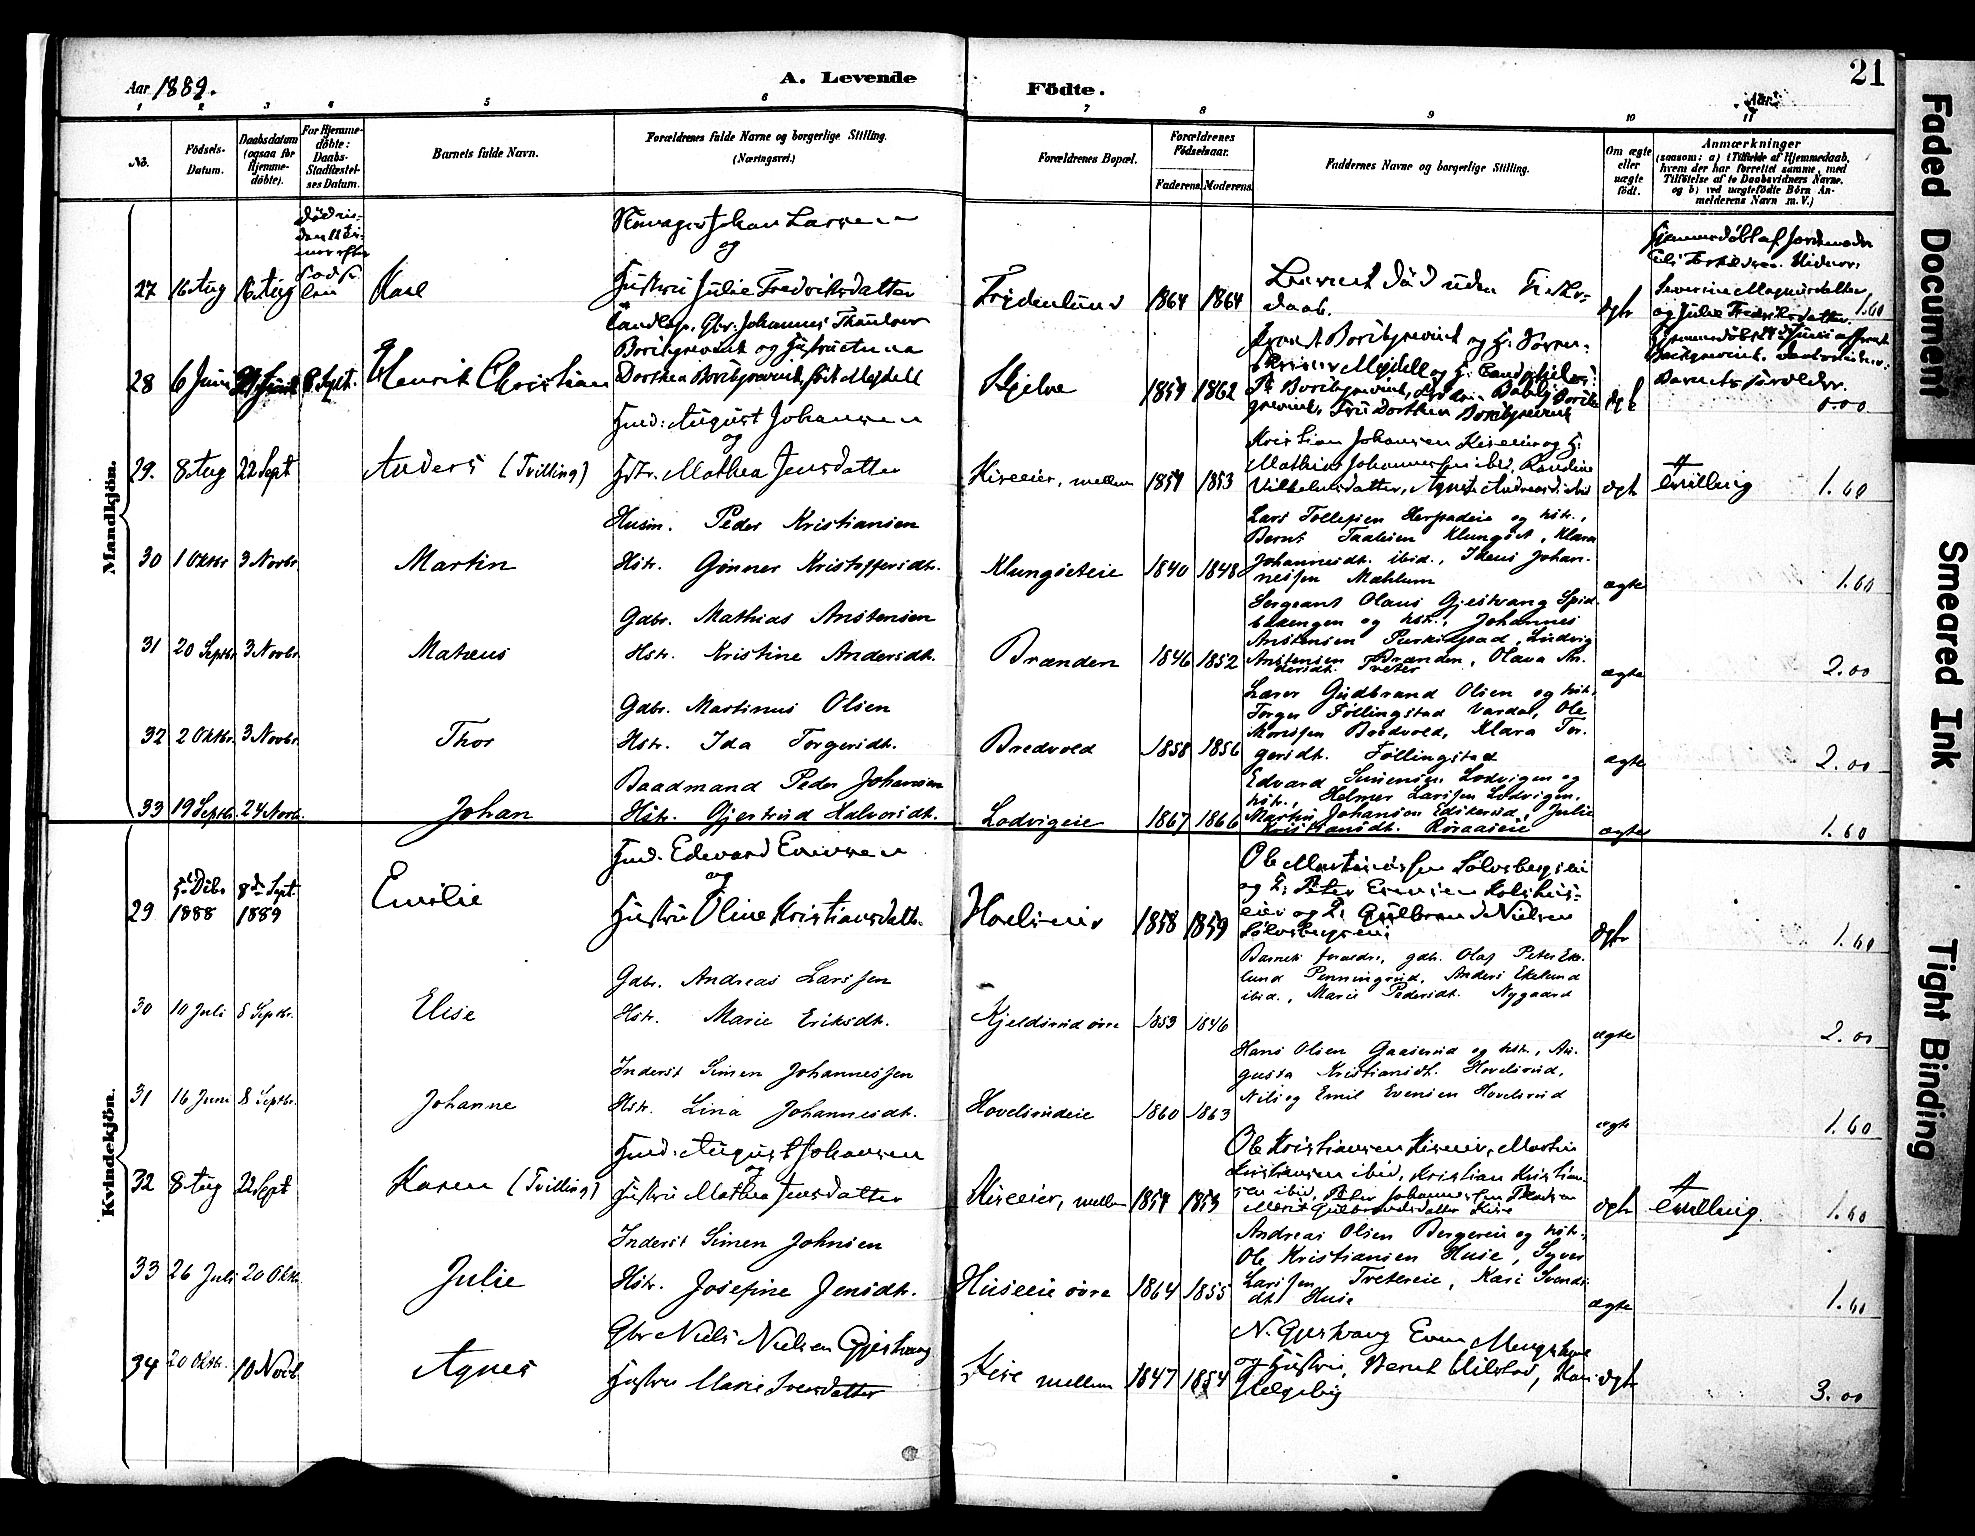 Aar 1889.
A. Levende
Födte.
21
Aar
1 2 3 4 5 6 7 8 9 10 11
No.
Födsels-
Datum.
Daabsdatum
(ogsaa for
Hjemme-
döbte).
For Hjemme-
döbte:
Daabs-
Stadfæstel-
ses Datum.
Barnets fulde Navn.
Forældrenes fulde Navne og borgerlige Stilling.
(Næringsvei.)
Forældrenes Bopæl.
Forældrenes
Födselsaar.
Faderens. Moderens.
Faddernes Navne og borgerlige Stilling.
Om ægte
eller
uægte
födt.
Anmærkninger
(saasom: a) i Tilfælde af Hjemmedaab,
hvem der har forrettet samme, med
Tilföielse af to Daabsvidners Navne,
og b) ved uægtefödte Börn An-
melderens Navn m. V.)
Mandkjön.
27 16 Aug 16 Aug
Karl
Johan Larsen
og
Hustru Julie Fredriksdatter
Frydenlund 1864 1864
Barnet død uden
daab.
Severine Magnusdatter
og Julie Fredriksdatter. 1.60
28 6 Juni 8 Sept.
Henrik Christian
Landhp. Gbr. Johannes Thaulow
Borchgrevink og Hustru Anna
Dorthea Borchgrevink, født Mejdell
Skjelve 1859 1862
Borchgrevink, Fru Dorthea Borchgrevink
Barnets forældre.
0.00
29. 8 Aug 22 Sept
Anders (Tvilling)
Hmd: August Johansen
og
Hstr. Mathea Jensdatter
Kiseeier, mellem 1859 1853
Kristian Johansen Kiseeie og H.
Mathias Johannessen ibid, Randine
Vilhelmsdatter, Agnete Andreasd. ibid
ægte Tvilling 1.60
30 1 Oktbr 3 Novbr.
Martin
Husm. Peder Kristiansen
Hstr. Gønner Kristoffersdt.
Klungseteie 1840 1848
Lars Tollefsen Herpadeie og hstr.,
Bernt Taalesen Klungset, Klara
Johannesdt. ibid., Iseus Johan-
nessen Mæhlum
ægte 1.60
31 20 Septbr. 3 Novbr.
Mateus
Gdbr. Mathias Anstensen
Hstr. Kristine Andersdt.
Brænden 1846 1852
Sergeant Olaus Gjestvang Spid-
bakengen og hstr., Johannes
Anstensen Purkerpad, Ludvig
Anstensen Brænden, Olava An-
dersdt. Treter
ægte 2.00
32 2 Oktbr. 3 Novbr.
Thor
Gdbr. Martinus Olsen
Hstr. Ida Torgersdt.
Bredvold 1858 1856
Lærer Gudbrand Olsen og hstr.
Torger Føllingstad Vardal, Ole
Morissen Bredvold, Klara Tor-
gersdt. Føllingstad
ægte 2.00
33 19 Septbr. 24 Novbr.
Johan
Baadmand Peder Johansen
Hstr. Gjertrud Halvorsdt.
Lodvigeie 1867 1866
Edvard Simensen Lodvigen og
hstr., Helmer Larssen Lodvigen,
Martin Johansen Edstersrud, Julie
Kristiansdt. Røraaseie
ægte 1.60
Kvindekjön.
29 5te Dcbr 1888 8de Sept. 1889
Emilie
Hmd. Edevard Evensen
og
Hustru Oline Kristiansdatt.
Hovlseeie 1858 1859
Ole Martinussen Sølvsbergseie
og H. Peter Evensen Kolshus-
eie og H. Gulbrand Nielsen
Sølvsbergseie
ægte 1.60
30 10 Juli 8 Septbr.
Elise
Gdbr. Andreas Larssen
Hstr. Marie Eriksdt.
Kjeldsrud øvre 1853 1846
Barnets forældre, gdb. Olaf Peter Eke-
lund Penningsrud, Anders Ekelund
ibid., Marie Pedersdt. Nygaard
ægte 2.00
31 16 Juni 8 Septbr.
Johanne
Inderst Simen Johannessen
Hstr. Lina Johannesdt.
Hovelsrudeie 1860 1863
Hans Olsen Gaaserud og hstr., Au-
gusta Kristiansdt. Hovelsrud,
Nils og Emil Evensen Hovelsrud
ægte 1.60
32 8 Aug 22 Sept
Karen (Tvilling)
Hmd: August Johansen
og
Hustru Mathea Jensdatter
Kiseeier, mellem 1859 1853
Ole Kristiansen Kiseeie, Martin
Kristiansen ibid, Kristian Kristian-
sen ibid, Peter Johannessen
Marit Gulbrandsdatter Kise
ægte Tvilling. 1.60
33 26 Juli 20 Oktbr
Julie
Inderst Simen Johnsen
Hstr. Josefine Jensdt.
Huseeie øvre 1864 1855
Andreas Olsen Bergereie og hstr.
Ole Kristiansen Huse, Syver
Larssen Tretereie, Kari Svends-
dt. Huse
ægte 1.60
34 20 Oktbr. 10 Novb.
Agnes
Gbr Niels Nielsen Gjestvang
Hustru Marie Iversdatter
Kise mellem 1847 1854
N. Gjestvang Even
og Hustru, Bernt Milstad,
Helgeby
ægte 3.00
Faded Document
Smeared Ink
Tight Binding